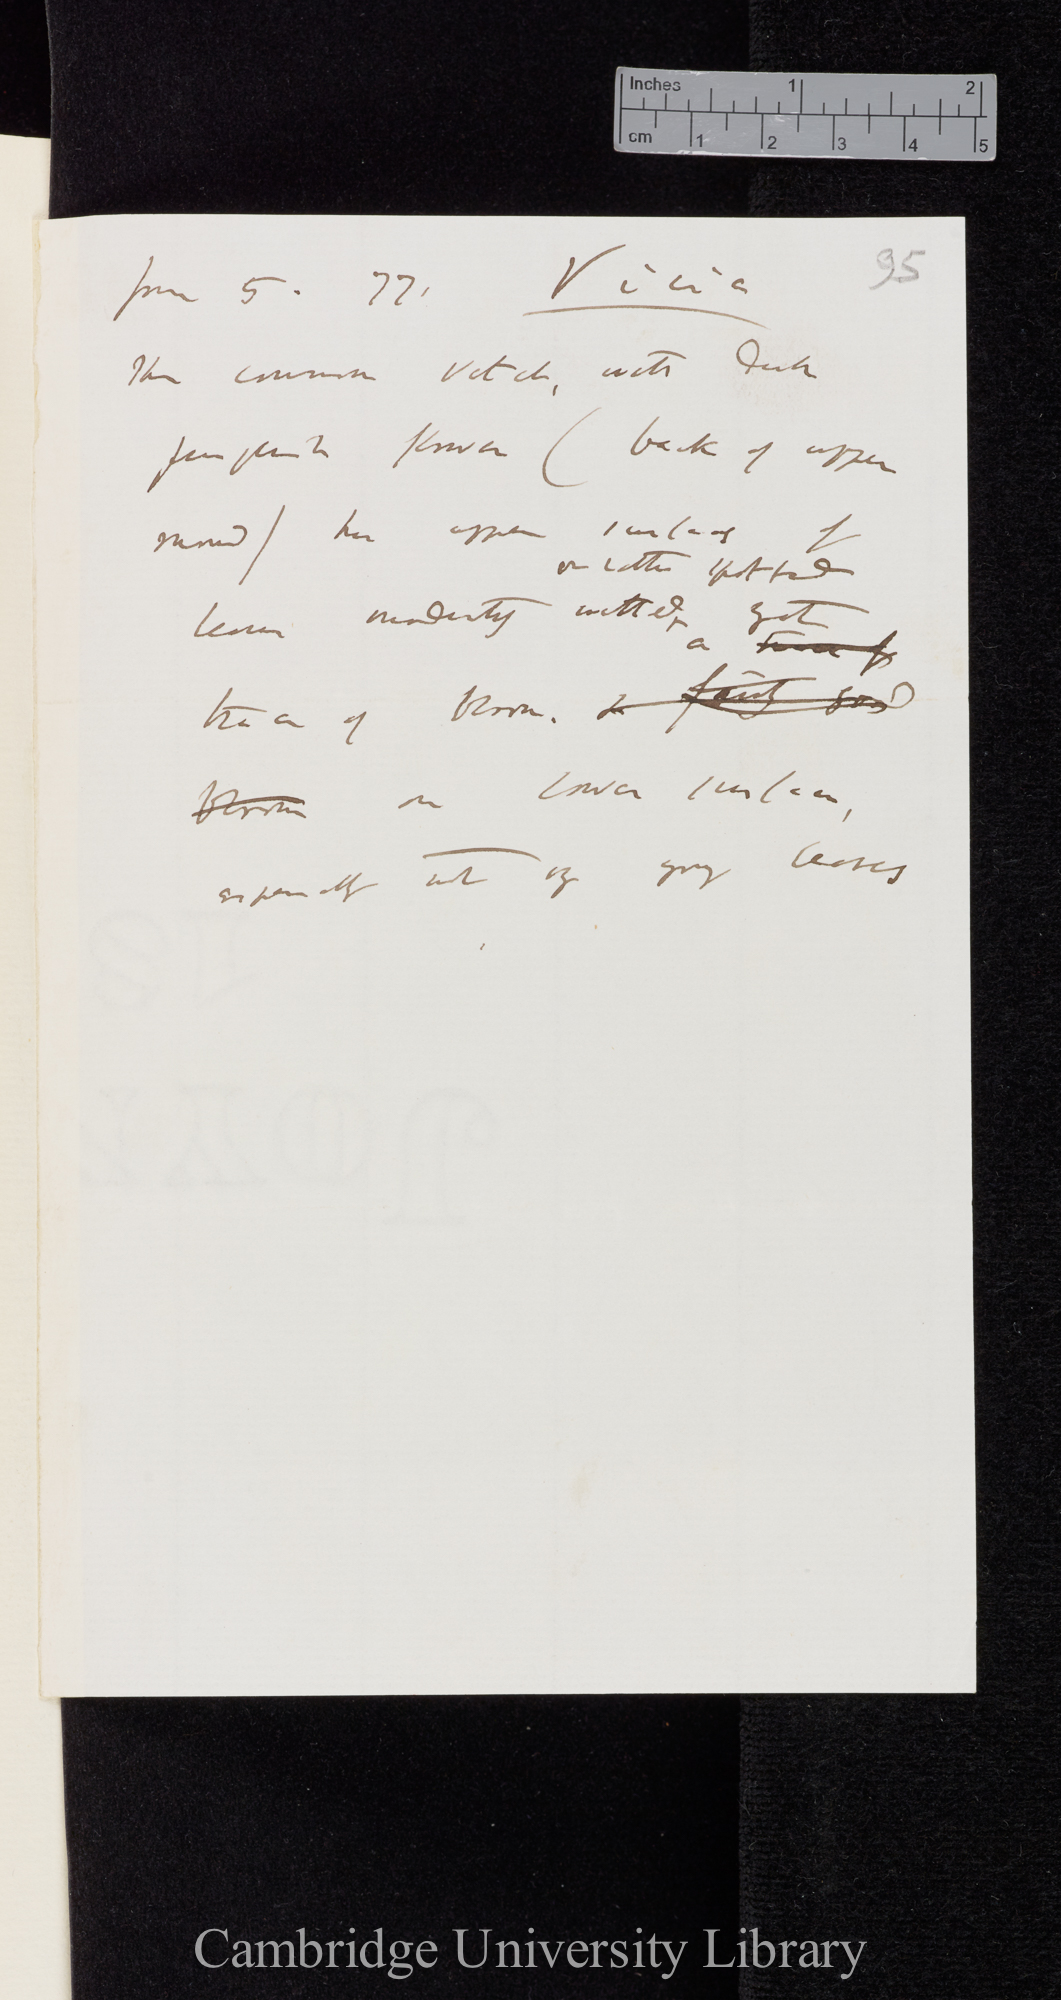 Inches 1 2
cm 1 2 3 4 5
95
June 5. 77. Vicia
The common Vetch, with dark
purplish flower (back of upper
) has upper surface of
or rather spotted
leaves moderately wetted, yet
a trace of
trace of bloom. fairly good
bloom on lower surface,
especially with of young leaves
Cambridge University Library